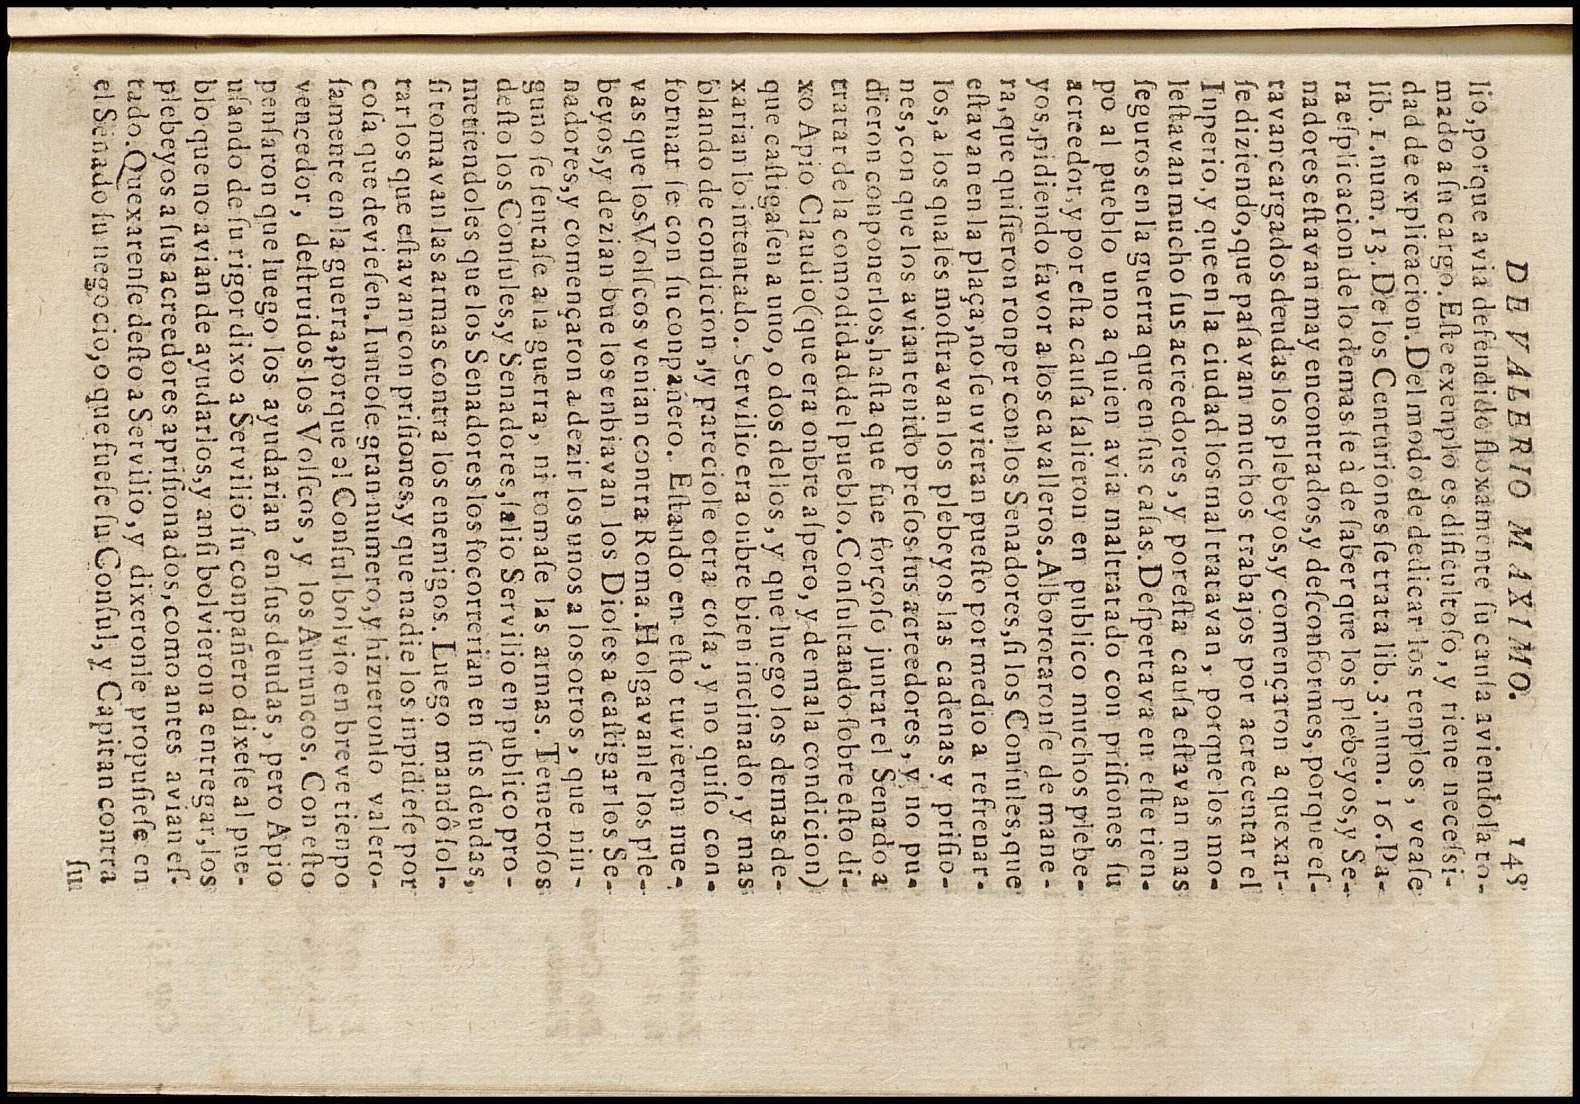 DE VALERIO MAXIMO. 148
lio, porque avia defendido floxamente ſu cauſa aviendola to-
mado a ſu cargo. Eſte exenplo es dificultoſo, y tiene neceſsi-
dad de explicacion. Del modo de dedicar los tenplos, veaſe
lib. 1. num. 13. De los Centuriones ſe trata lib. 3. num. 16. Pa-
ra eſplicacion de lo demas ſe à de ſaber que los plebeyos, y Se-
nadores eſtavan may encontrados, y deſconformes, porque eſ-
tavan cargados deudas los plebeyos, y començaron a quexar-
ſe diziendo, que paſavan muchos trabajos por acrecentar el
Inperio, y que en la ciudad los mal tratavan, porque los mo-
leſtavan mucho ſus acreedores, y por eſta cauſa eſtavan mas
ſeguros en la guerra que en ſus caſas. Deſpertava en eſte tien-
po al pueblo uno a quien avia maltratado con priſiones ſu
acreedor, y por eſta cauſa ſalieron en publico muchos plebe-
yos, pidiendo favor a los cavalleros. Alborotaronſe de mane-
ra, que quiſieron ronper con los Senadores, ſi los Conſules, que
eſtavan en la plaça, no ſe uvieran pueſto por medio a refrenar-
los, a los quales moſtravan los plebeyos las cadenas y priſio-
nes, con que los avian tenido preſos ſus acreedores, y no pu-
dieron conponerlos, haſta que fue forçoſo juntar el Senado a
tratar de la comodidad del pueblo. Conſultando ſobre eſto di-
xo Apio Claudio (que era onbre aſpero, y de mala condicion)
que caſtigaſen a uno, o dos dellos, y que luego los demas de-
xarian lo intentado. Servilio era oubre bien inclinado, y mas
blando de condicion, y pareciole otra coſa, y no quiſo con-
formar ſe con ſu conpañero. Eſtando en eſto tuvieron nue-
vas que los Volſcos venian contra Roma Holgavanle los ple-
beyos, y dezian bue los enbiavan los Dioſes a caſtigar los Se-
nadores, y començaron a dezir los unos a los otros, que nin-
guno ſe ſentaſe a la guerra, ni tomaſe las armas. Temeroſos
deſto los Conſules, y Senadores, ſalio Servilio en publico pro-
metiendoles que los Senadores los ſocorrerian en ſus deudas,
ſi tomavan las armas contra los enemigos. Luego mandô ſol-
tar los que eſtavan con priſiones, y que nadie los inpidieſe por
coſa que devieſen. Iuntoſe gran numero, y hizieronlo valero-
ſamente en la guerra, porque el Conſul bolvio en breve tienpo
vencedor, deſtruidos los Volſcos, y los Auruncos. Con eſto
penſaron que luego los ayudarian en ſus deudas, pero Apio
uſando de ſu rigor dixo a Servilio ſu conpañero dixeſe al pue-
blo que no avian de ayudarlos, y anſi bolvieron a entregar, los
plebeyos a ſus acreedores apriſionados, como antes avian eſ-
tado. Quexarenſe deſto a Servilio, y dixeronle propuſieſe en
el Senado ſu negocio, o que fueſe ſu Conſul, y Capitan contra
ſu